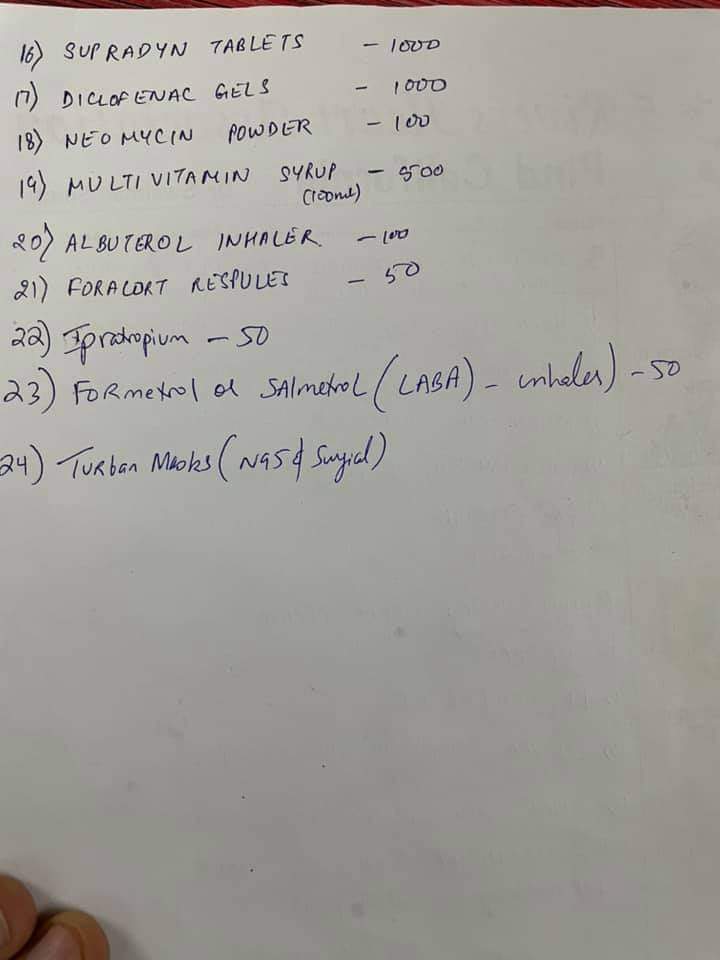 16) SUPRADYN TABLETS - 1000
17) DICLOFENAC GELS - 1000
18) NEOMYCIN POWDER - 100
19) MULTIVITAMIN SYRUP - 500
(100ml)
20) ALBUTEROL INHALER. - 100
21) FORACORT RESPULES - 50
22) Ipratropium - 50
23) FORmetrol or SAlmetroL (LABA) - inhaler) - 50
24) TURban Masks (N95 & Surgical)